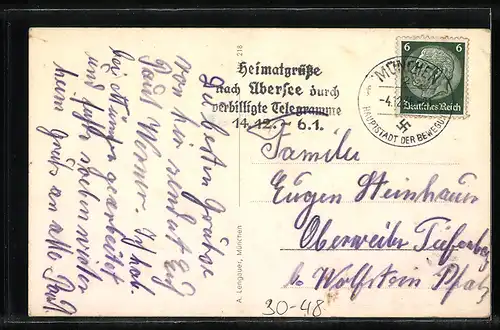 Die besten Grüße
von hier sendet Euch
Paul Werner. Ich hab
bei gearbeitet
und fahre soeben weiter
heim Gruß an alle Paul.
218
A. Lengauer, München
Heimatgrüße
nach Übersee durch
verbilligte Telegramme
14.12. - 6.1.
6 6
Deutsches Reich
MÜNCHEN
-4.12
HAUPTSTADT DER BEWEGUNG
Familie
Eugen Steinhauer
Oberweiler Tiefenbach
b. Wolfstein Pfalz
30-48